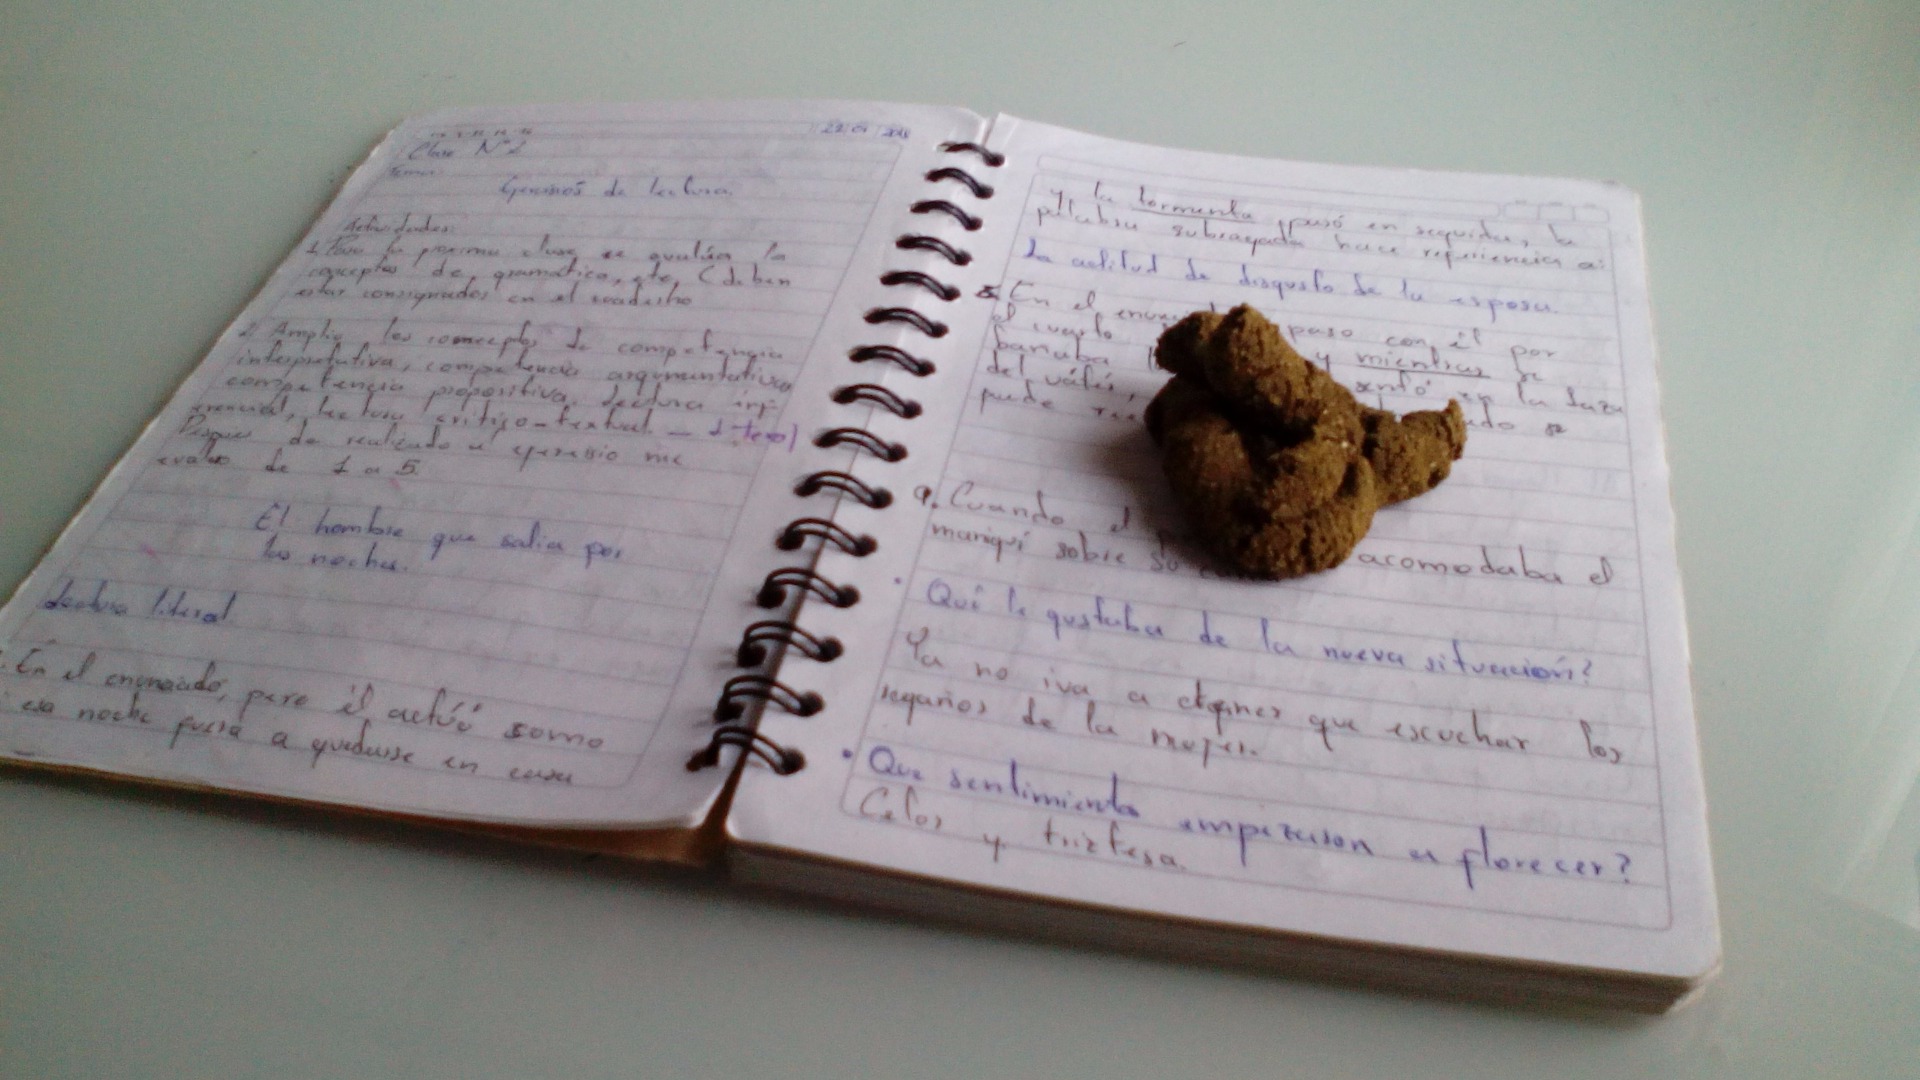 22 01 2018
Clase N°2
Tema:
de lectura
Actividades:
1. Para la proxima clase se evalúa la
conceptos de gramática, etc, (deben
estar consignados en el cuaderno
2. Amplio los conceptos de competencia
interpretativa, competencia argumentativa
competencia propositiva, lectura inf
erencial, lectura critico-textual -
Despues de realizado el ejercicio me
evaluo de 1 a 5.
El hombre que salia por
las noches.
Lectura literal
En el enunciado, pero él actuó como
esa noche fuera a quedarse en casa
y la tormenta pasó en seguida, la
palabra subrayada hace referencia a:
La actitud de disgusto de la esposa.
En el paso con él por
el cuarto y mientras se
bañaba sentó en la taza
del váter,
puede
9. Cuando el acomodaba el
maniquí sobre su
• Qué le gustaba de la nueva situación?
Ya no iva a tener que escuchar los
regaños de la mujer.
• Que sentimiento empezaron a florecer?
Celos y trizteza.